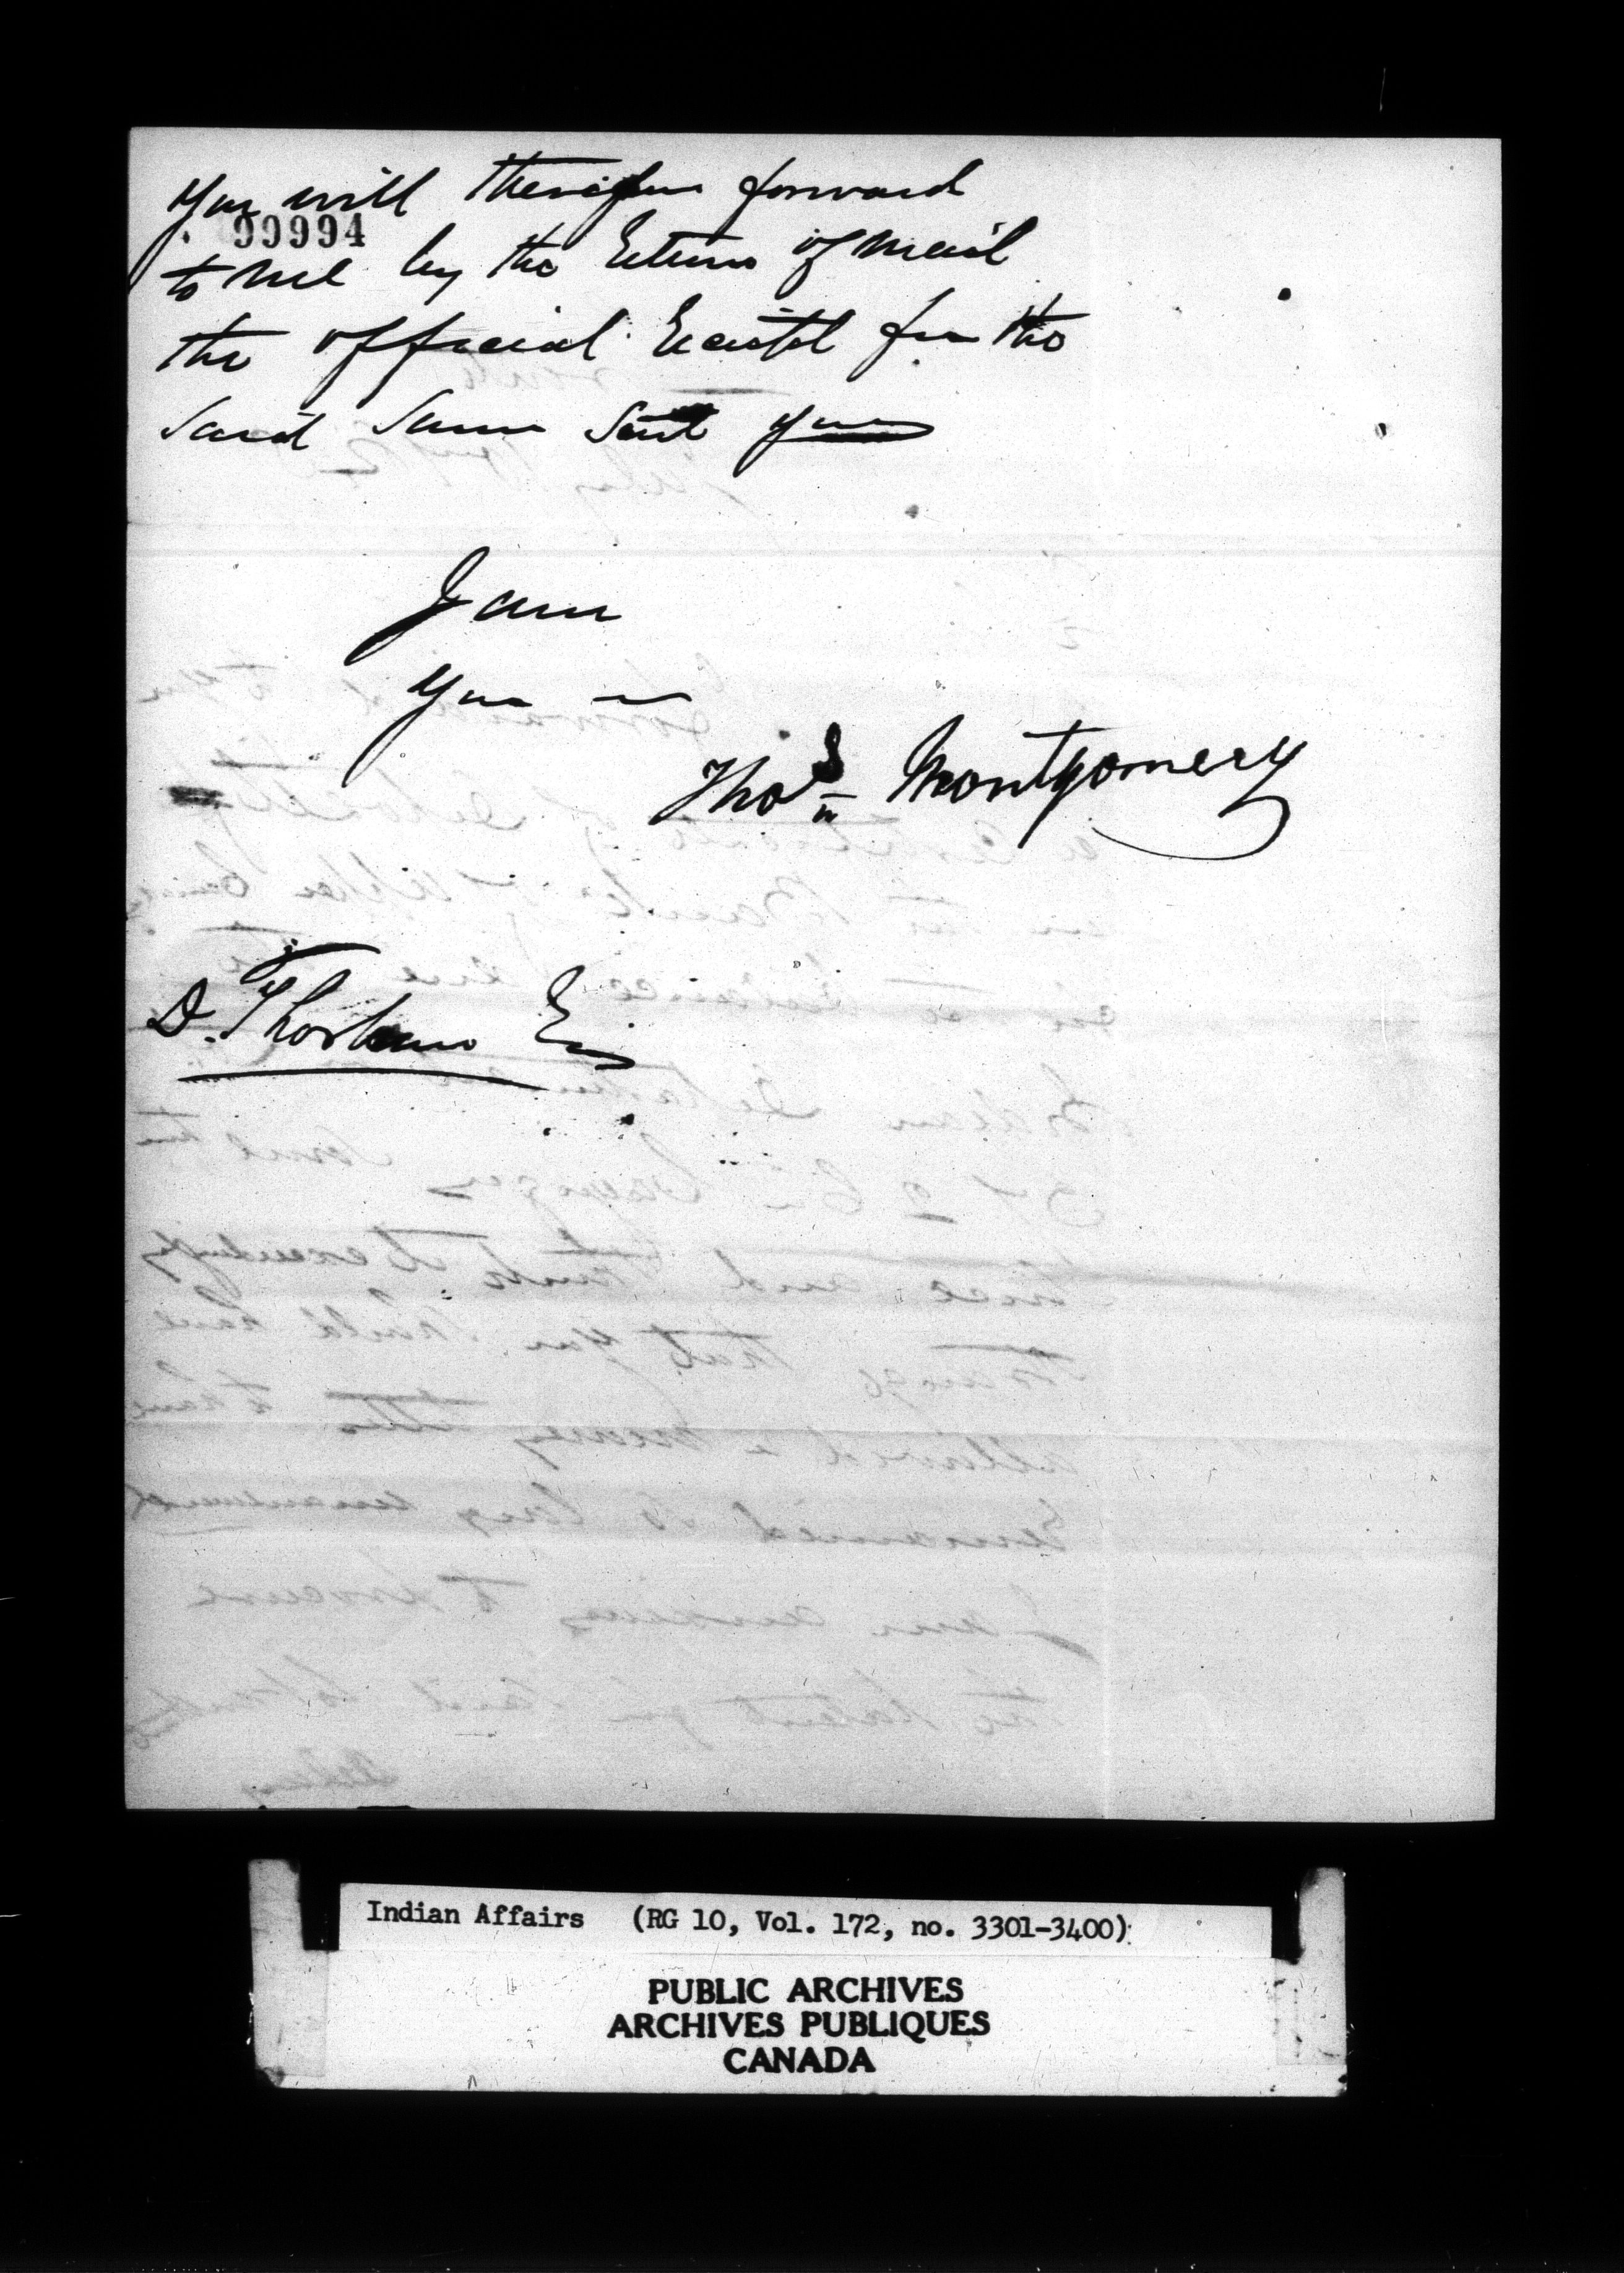 You will therefore forward
99994
to me by the Return of Mail
the official Receipt for the
said Sum sent you
I am
Your
Thos Montgomery
D. Thorburn Esq
Indian Affairs (RG 10, Vol. 172, no. 3301-3400)
PUBLIC ARCHIVES
ARCHIVES PUBLIQUES
CANADA